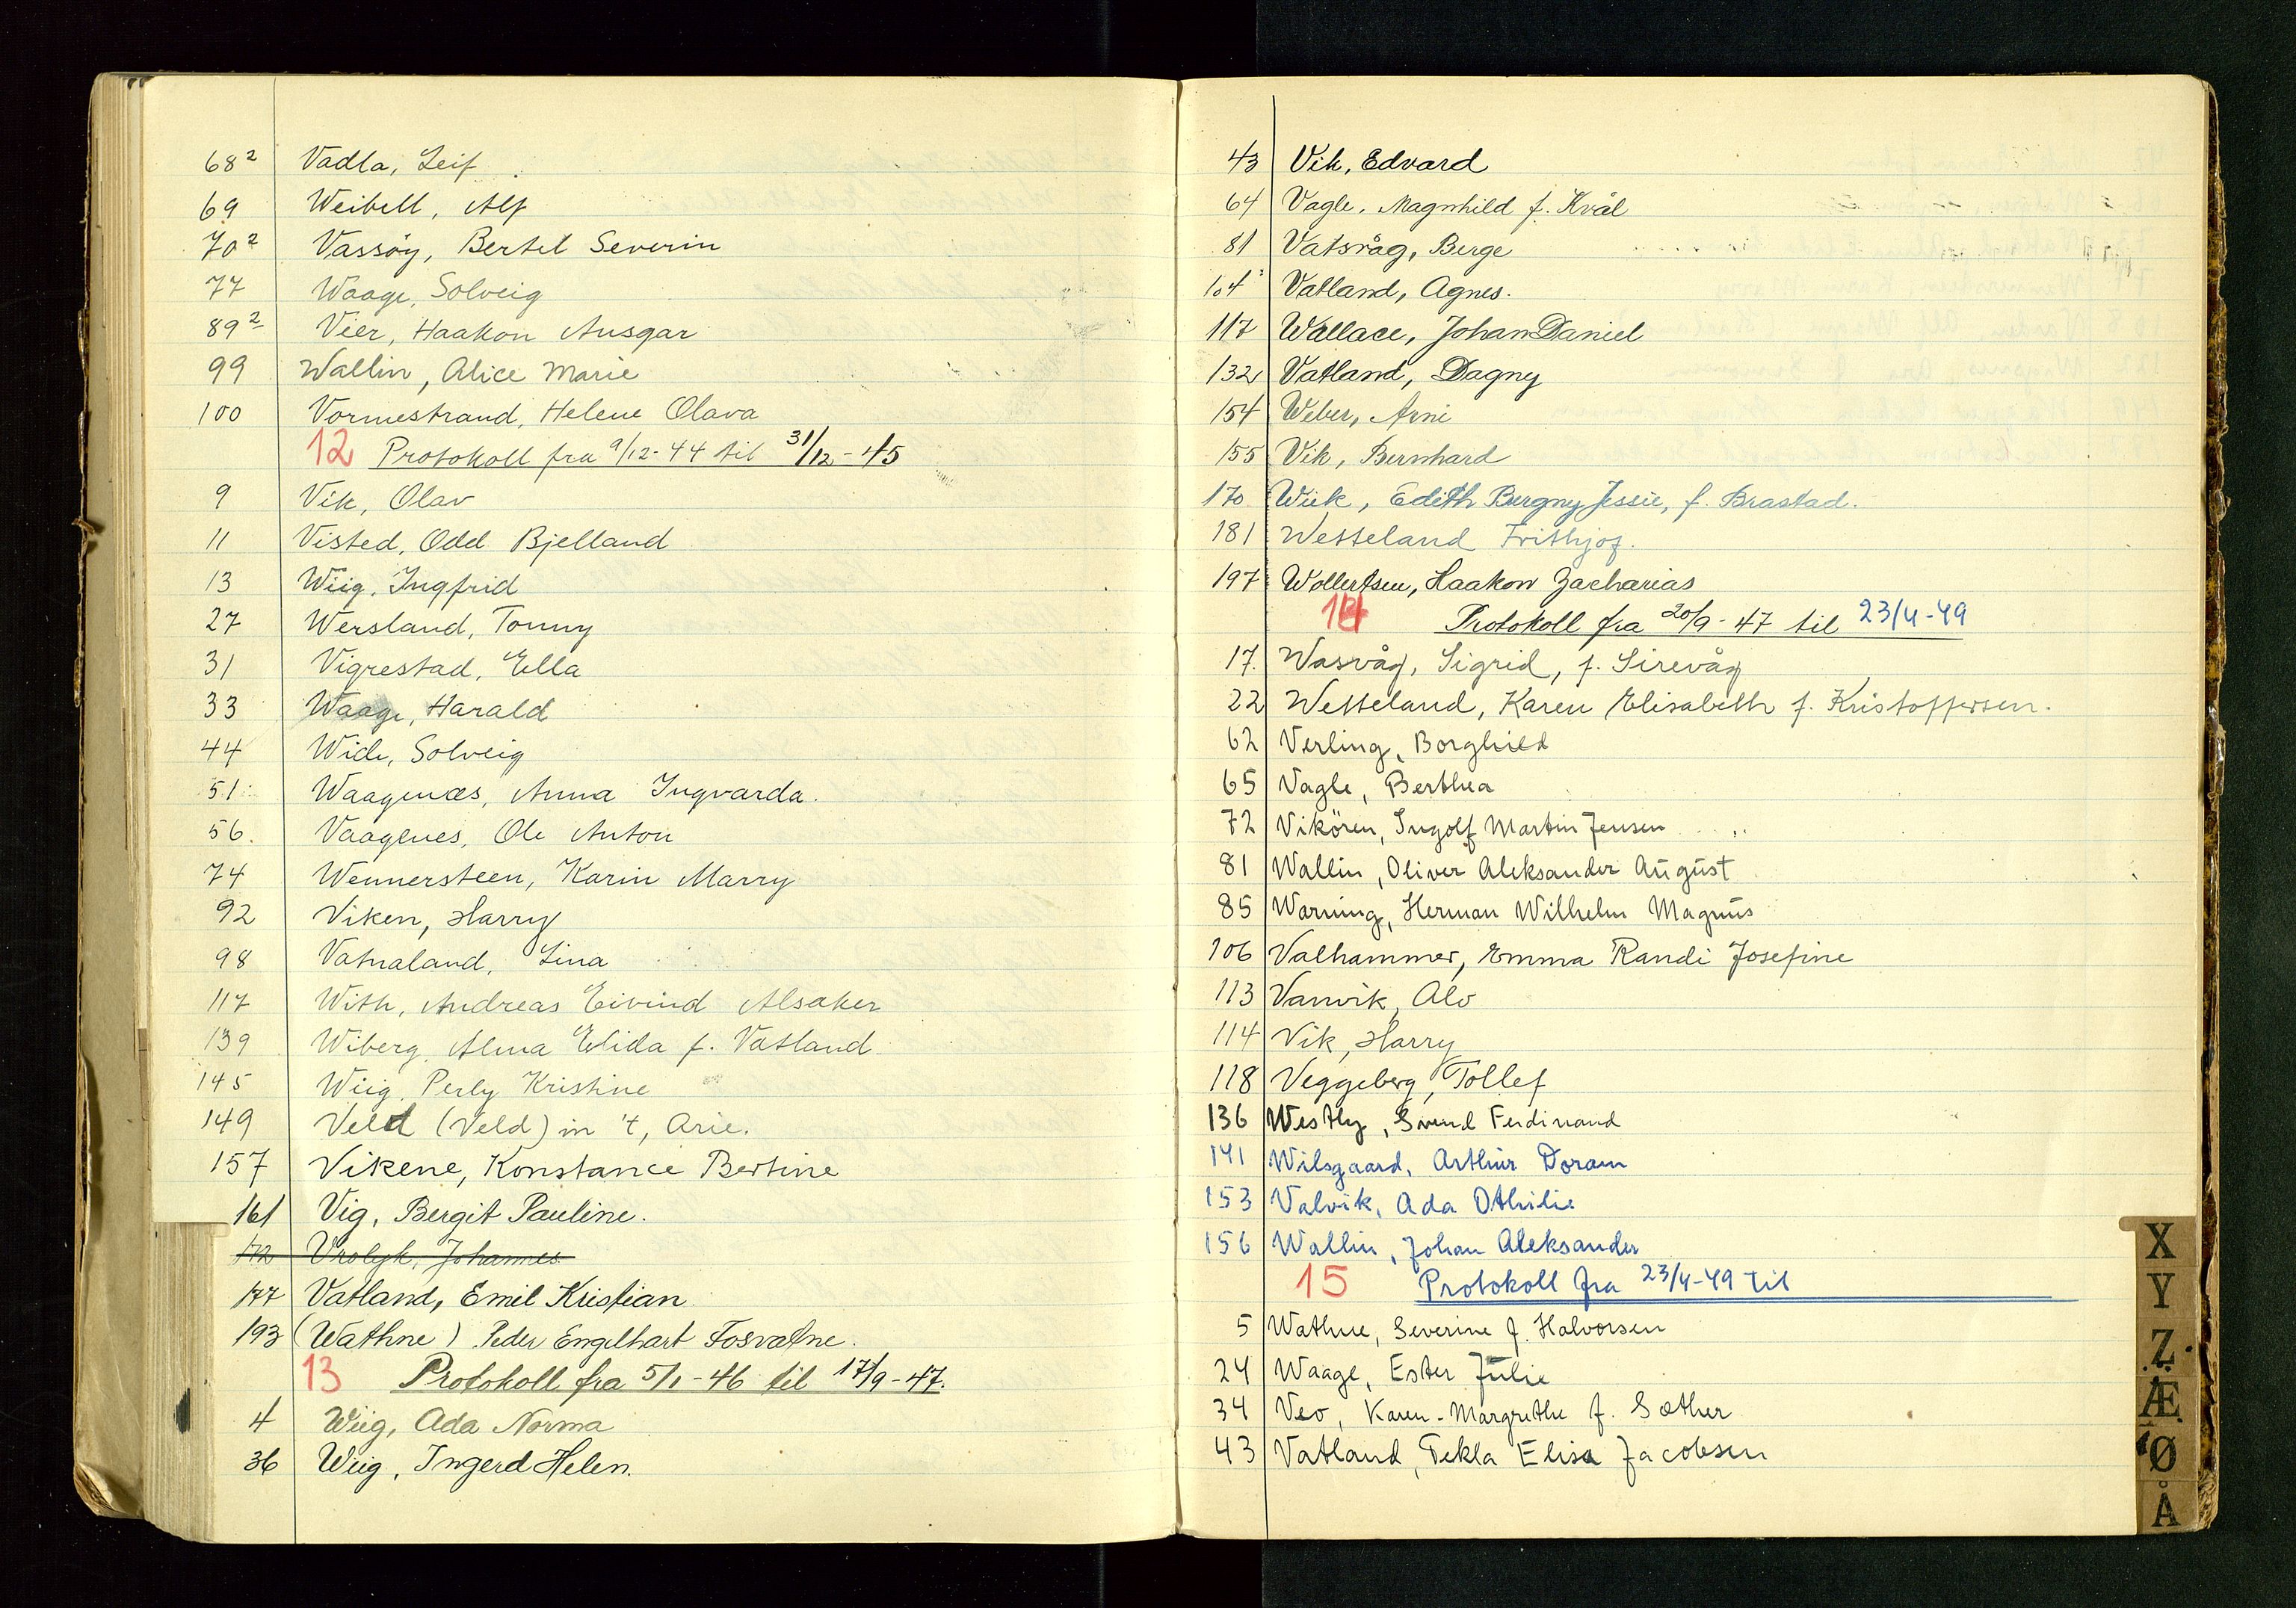 68² Vadla, Leif
69 Weibell, Alf
70² Vassöy, Bertel Severin
77 Waage, Solveig
89² Vier, Haakon Ansgar
99 Wallin, Alice Marie
100 Vormestrand, Helene Olava
12 Protokoll fra 9/12-44 til 31/12-45
9 Vik, Olav
11 Visted, Odd Bjelland
13 Wiig, Ingfrid
27 Wersland, Tonny
31 Vigrestad, Ella
33 Waage, Harald
44 Wide, Solveig
51 Waagenæs, Anna Ingvarda.
56. Vaagenes, Ole Anton
74 Wennersteen, Karin Marry
92 Viken, Harry
98 Vatnaland, Lina
117 With, Andreas Eivind Alsaker
139 Wiberg, Alma Elida f. Vatland
145 Wiig, Perly Kristine
149 Veld (Veld) in 't, Arie.
157 Vikene, Konstance Bertine
161 Vig, Bergit Pauline.
172 Vrolyk, Johannes
177 Vatland, Emil Kristian
193 (Wathne) Peder Engelhart Fosvatne.
13 Protokoll fra 5/1-46 til 17/9-47.
4 Wiig, Ada Norma
36 Wiig, Ingerd Helen.
43 Vik, Edvard
64 Vagle, Magnhild f. Kvål
81 Vatsvåg, Berge
104² Vatland, Agnes.
117 Wallace, Johan Daniel
132 Vatland, Dagny
154 Weber, Arni
155 Vik, Bernhard
170 Wiek, Edith Bergny Jessie, f. Brastad.
181 Wetteland Frithjof.
197 Wollertsen, Haakon Zacharias
14 Protokoll fra 20/9-47 til 23/4-49
17. Wasvåg, Sigrid, f. Sirevåg
22 Wetteland, Karen Elisabeth f. Kristoffersen.
62 Verling, Borghild
65 Vagle, Berthea
72 Vikören, Ingolf Martin Jensen
81 Wallin, Oliver Aleksander August
85 Warning, Herman Wilhelm Magnus
106 Valhammer, Emma Randi Josefine
113 Vanvik, Alv
114 Vik, Harry
118 Veggeberg, Tollef
136 Westly, Svend Ferdinand
141 Wilsgaard, Arthur Doram
153 Valvik, Ada Othilie
156 Wallin, Johan Aleksander
15 Protokoll fra 23/4-49 til
5 Wathne, Severine f. Halvorsen
24 Waage, Ester Julie
34 Veo, Karen-Margrethe f. Sæther
43 Vatland, Tekla Elisa Jacobsen
X
Y
Z
Æ
Ø
Å